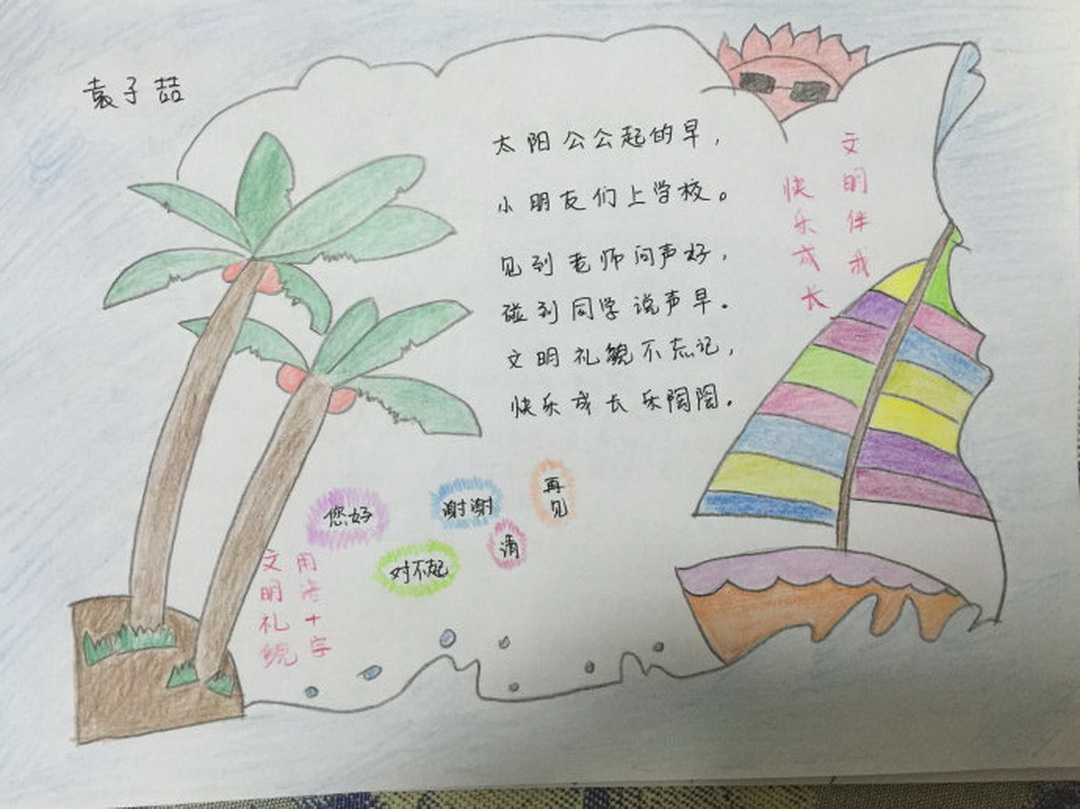 袁子喆
太阳公公起的早，
小朋友们上学校。
见到老师问声好，
碰到同学说声早。
文明礼貌不忘记，
快乐成长乐陶陶。
文明伴我
快乐成长
您好
谢谢
再见
对不起
请
文明礼貌
用语十字